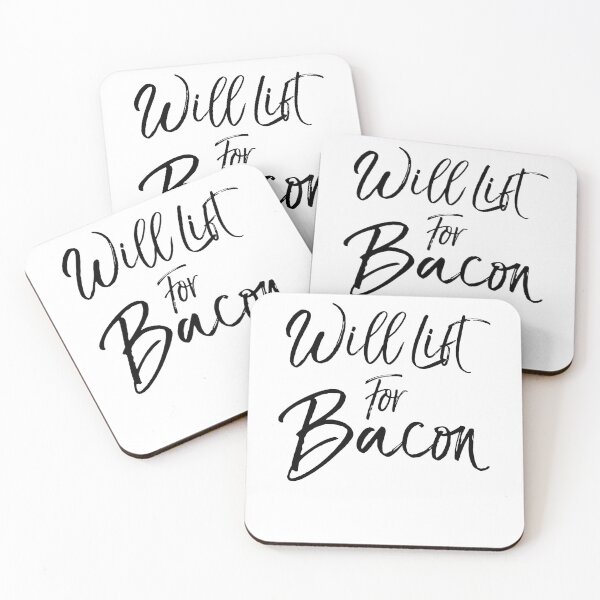 Will Lift
For
Bacon
Will Lift
For
Bacon
Will Lift
For
Bacon
Will Lift
For
Bacon